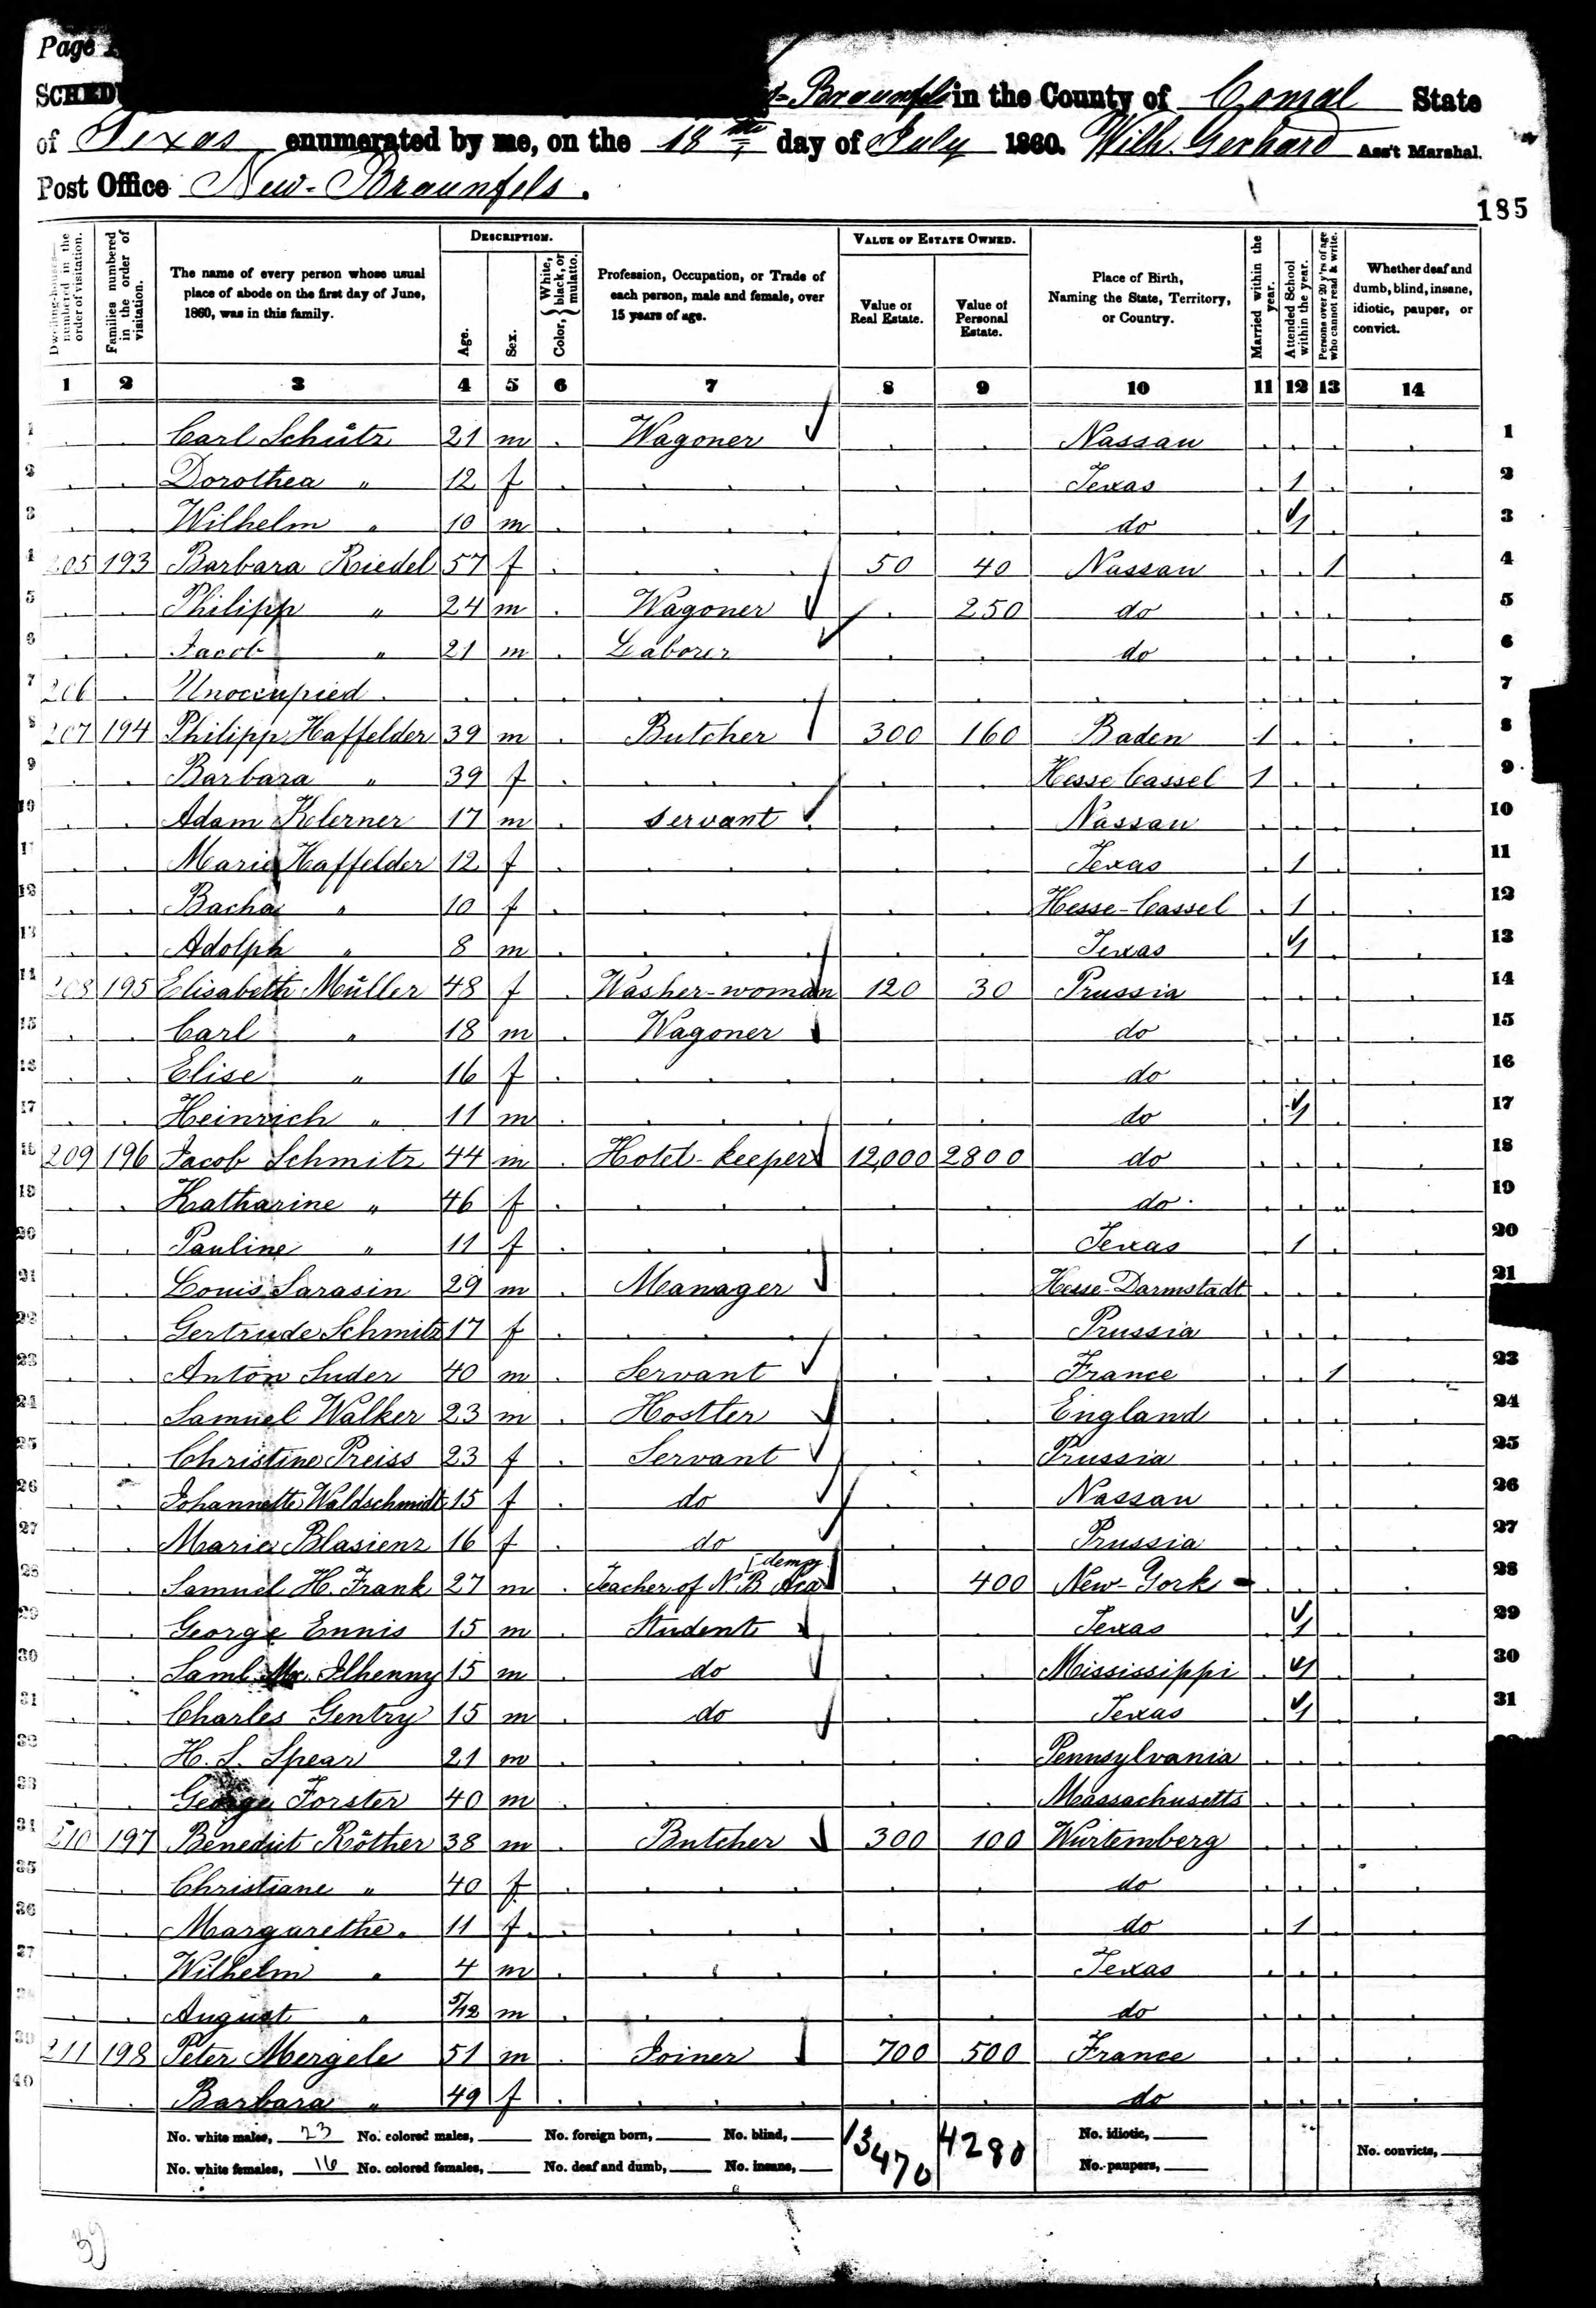 Page
SCHED Braunfels in the County of Comal State
of Texas enumerated by me, on the 18th day of July 1860. Wilh. Gerhard Ass't Marshal.
Post Office New-Braunfels.
185
Dwelling-houses—numbered in the order of visitation.
Families numbered in the order of visitation.
The name of every person whose usual place of abode on the first day of June, 1860, was in this family.
DESCRIPTION.
Age.
Sex.
Color, { White, black, or mulatto.
Profession, Occupation, or Trade of each person, male and female, over 15 years of age.
VALUE OF ESTATE OWNED.
Value of Real Estate.
Value of Personal Estate.
Place of Birth, Naming the State, Territory, or Country.
Married within the year.
Attended School within the year.
Persons over 20 y'rs of age who cannot read & write.
Whether deaf and dumb, blind, insane, idiotic, pauper, or convict.
1 2 3 4 5 6 7 8 9 10 11 12 13 14
1 Carl Schütz 21 m Wagoner Nassau 1
2 Dorothea " 12 f Texas 1 2
3 Wilhelm " 10 m do 1 3
4 205 193 Barbara Riedel 57 f 50 40 Nassau 1 4
5 Philipp " 24 m Wagoner 250 do 5
6 Jacob " 21 m Laborer do 6
7 206 Unoccupied. 7
8 207 194 Philipp Haffelder 39 m Butcher 300 160 Baden 1 8
9 Barbara " 39 f Hesse Cassel 1 9
10 Adam Klerner 17 m servant Nassau 10
11 Marie Haffelder 12 f Texas 1 11
12 Bacha " 10 f Hesse-Cassel 1 12
13 Adolph " 8 m Texas 1 13
14 208 195 Elisabeth Müller 48 f Washer-woman 120 30 Prussia 14
15 Carl " 18 m Wagoner do 15
16 Elise " 16 f do 16
17 Heinrich " 11 m do 1 17
18 209 196 Jacob Schmitz 44 m Hotel-keeper 12,000 2800 do 18
19 Katharine " 46 f do 19
20 Pauline " 11 f Texas 1 20
21 Louis Sarasin 29 m Manager Hesse-Darmstadt 21
22 Gertrude Schmitz 17 f Prussia
23 Anton Suder 40 m Servant France 1 23
24 Samuel Walker 23 m Hostler England 24
25 Christine Preiss 23 f Servant Prussia 25
26 Johannette Waldschmidt 15 f do Nassau 26
27 Maria Blasienz 16 f do Prussia 27
28 Samuel H. Frank 27 m Teacher of N. B. Aca[demy 400 New-York 28
29 George Ennis 15 m Student Texas 1 29
30 Saml. Mc. Ilhenny 15 m do Mississippi 1 30
31 Charles Gentry 15 m do Texas 1 31
32 H. S. Spear 21 m Pennsylvania
33 George Forster 40 m Massachusetts
34 210 197 Benedict Röther 38 m Butcher 300 100 Würtemberg
35 Christiane " 40 f do
36 Margarethe " 11 f do 1
37 Wilhelm " 4 m Texas
August " 5/12 m do
39 211 198 Peter Mergele 51 m Joiner 700 500 France
40 Barbara " 49 f do
No. white males, 23 No. colored males, No. foreign born, No. blind, 13470 4280 No. idiotic,
No. white females, 16 No. colored females, No. deaf and dumb, No. insane, No. paupers, No. convicts,
39